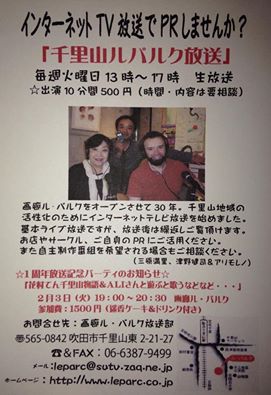 インターネットTV放送でPRしませんか?
「千里山ルバルク放送」
毎週火曜日13時~17時 生放送
☆出演10分間500円(時間・内容は要相談)
画廊ル・バルクをオープンさせて30年。千里山地域の
活性化のためにインターネットテレビ放送を始めました。
基本ライブ放送ですが、放送後は繰返しご覧頂けます。
お店やサークル、ご自身のPRにご活用ください。
また自主制作番組を希望される場合もご相談ください。
☆1周年放送記念パーティのお知らせ☆
2月3日(火)19:00~20:30 画廊ル・バルク
参加費:1500円(ケーキ&ドリンク付き)
お問合せ先:画廊ル・バルク放送部
〒565-0842 吹田市千里山東2-21-27
☎&FAX:06-6387-9499
メール:leparc@sutv.zaq.ne.jp
ホームページ:http://www.leparc.co.jp